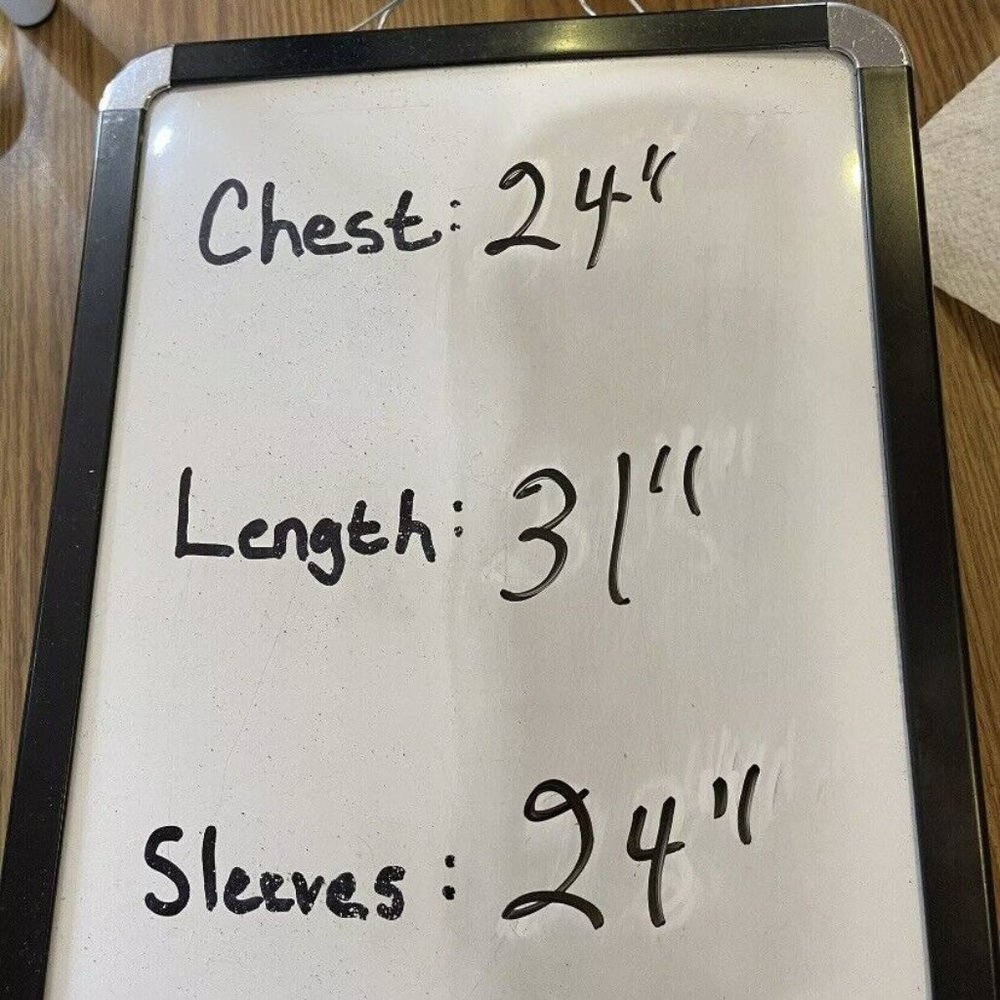 Chest: 24"
Length: 31"
Sleeves: 24"